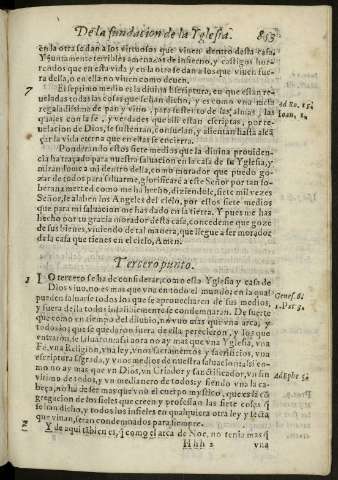 De la fundacion de la Yglesia. 853
en la otra se dan a los virtuosos que viuen dentro desta casa.
Y juntamente terribles amenazas de infierno, y castigos horrendos
que en esta vida y en la otra se dan a los que viuen fuera
della, o en ella no viuen como deuen.
7 El septimo medio es la diuina escriptura, en que estan reueladas
todas las cosas que se han dicho, y es como vna mesa
regaladissima de pan y vino, para sustento de las almas, las
quales con la fe, y verdades que alli estan escriptas, por reuelacion
de Dios, se sustentan, consuelan, y alientan hasta alcãçar
la vida eterna que en estas se encierra.
ad Ro. 15.
Ioan.
Ponderando estos siete medios que la diuina prouidencia
ha traçado para nuestra saluacion en la casa de su Yglesia, y
mirandome a mi dentro della, como morador que puedo gozar
de todos para saluarme, glorificaré a este Señor por tan soberana
merced como me ha hecho, diziendole, siete mil vezes
Señor, te alaben los Angeles del cielo, por estos siete medios
que para mi saluacion me has dado en la tierra. Y pues me has
hecho por tu gracia morador desta casa, concedeme que goze
de sus bienes, viuiendo de tal manera, que llegue a ser morador
de la casa que tienes en el cielo, Amen.
Tercero punto.
1 LO tercero se ha de considerar, como esta Yglesia y casa de
Dios viuo, no es mas que vna en todo el mundo, en la qual
pueden saluarse todos los que se aprouecharen de sus medios,
y fuera della todos indistinctamente se condenaran. De suerte
que como en tiempo del diluuio, no vuo mas que vna arca, y
todos los que se quedaron fuera de ella perecieron, y los que
entraron se saluaron assi aora no ay mas que vna Yglesia, vna
Fe, vna Religion, vna ley, vnos sacramentos y sacrificios, vna
escriptura sagrada, y vnos medios de nuestra saluacion assi como
no ay mas que vn Dios, vn Criador y sanctificador, vn fin
vltimo de todos, y vn medianero de todos y siendo vno la cabeça,
no ha de ser mas que vno el cuerpo mystico, que es la congregacion
de los fieles que creen y professan las siete cosas q̃
se han dicho, y todos los infieles en qualquiera otra ley y secta
que viuan, seran condenados para siempre.
Genes. 6.
1. Pet. 3.
ad Ephe. 4.
2 Y de aqui tãbien es, q̃ como el arca de Noe, no tenia mas q̃
Hhh 2 vna